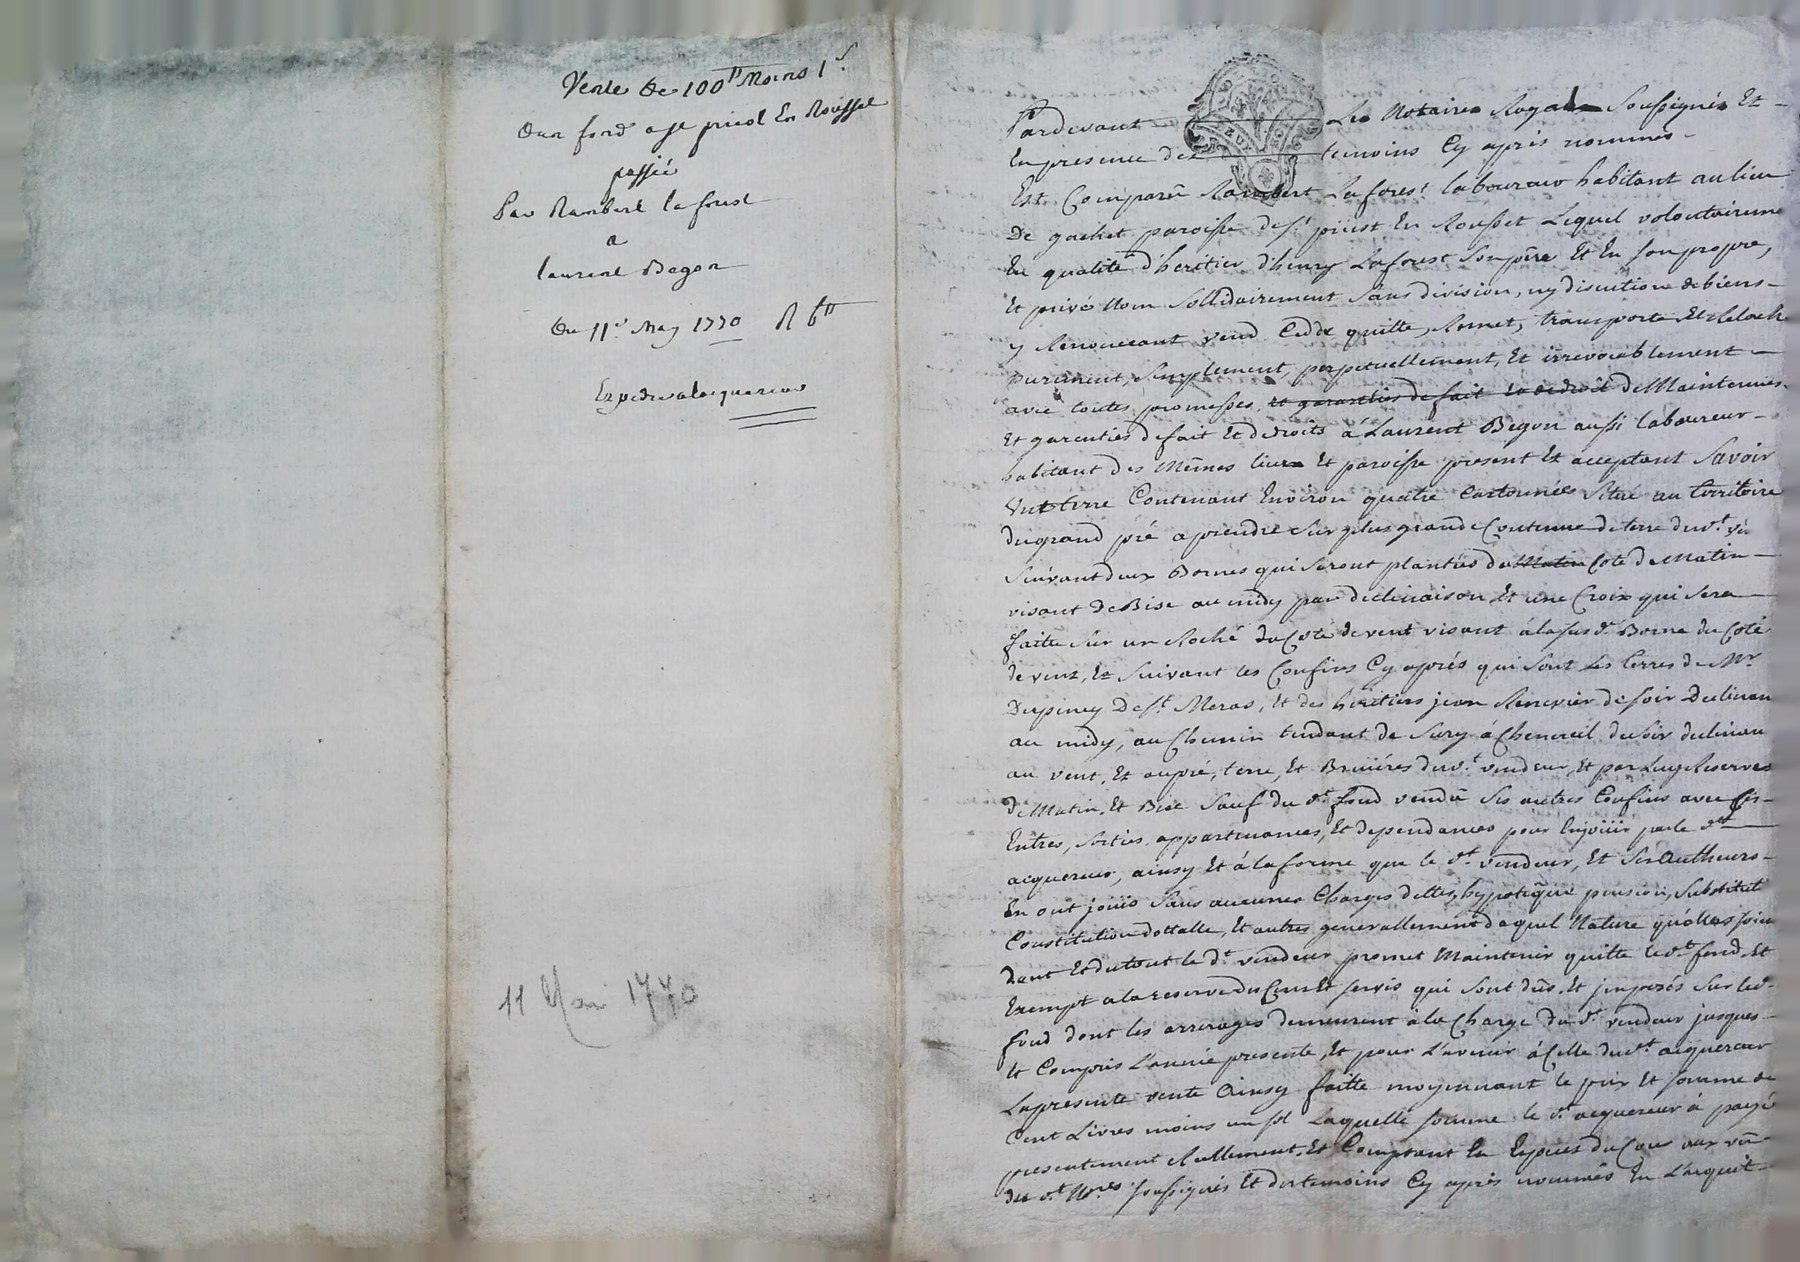 Vente De 100ᵗᵗ Moins 1ˢ.
Dun fond a st priest En Rousset
passée
Par Rambert laforest
a
laurent Begon
Du 11ᵉ. May 1770 R 6ᵗᵗ
Expedier alacquereur
11 Mai 1770
Pardevant Les Notaires Royaux Soussignés Et
En presence des temoins Cy aprés nommés
Est Comparû Rambert Laforest laboureur habitant au lieu
De gachet paroisse de sᵗ. priest En Rousset Lequel volontaireme
En qualité d'heritier d'henry Laforest Son pere Et En Son propre,
Et privé Nom Sollidairement Sans division, ny discution de biens
y Renonceant vend Cedde quitte, Remet, transporte Et Relache
purement, Simplement, perpetuellement, Et irrevocablement
avec toutes promesses et garanties de fait et de droit de Maintenues
Et garenties de fait Et de droits á Laurent Begon aussi laboureur
habitant des Mêmes lieux Et paroisse present Et acceptant Savoir
Une terre Contenant Environ quatre Cartonnées Situé au territoire
du grand pré a prendre Sur plus grande Contenue de terre du dᵗ. v
Suivant deux Bornes qui Seront plantées du Matin Coté de Matin
visant de Bise au midy par declinaison Et une Croix qui Sera
faitte Sur un Roché du Coté de vent visant á la susdᵉ. Borne du Coté
de vent, Et Suivant les Confins Cy aprés qui Sont Les terres de Mʳ
Dupiney De sᵗ. Meras, Et des heritiers jean Renevier de soir Declinan
au midy, au Chemin tendant de Sury á Chenereil du soir declinan
au vent, Et au pré, terre, Et Bruiéres dudᵗ. vendeur, Et par Luy Reservés
de Matin, Et Bise Sauf du dᵗ. fond vendû Ses autres Confins avec Ses
Entres, Sorties, appartenances, Et dependances pour En joüir par le dᵗ
acquereur, ainsy Et á la forme que le dᵗ. vendeur, Et Ses Autheurs
En ont joüis Sans aucunes Charges dettes, hypoteque pension, Substitut
Constitution dottalle, Et autres generallement de quel Nature qu'elles soien
dont Et du tout le dᵗ. vendeur promet Maintenir quitte le dᵗ. fond, Et
Exempt a la reserve du Cens Et servis qui Sont dûs, Et jmposés Sur led.
fond dont les arrerages demeurent á la Charge du dᵗ. vendeur jusques
Et Compris L'année presente, Et pour L'avenir á Celle dudᵗ. acquereur
La presente vente Ainsy faitte moyennant le prix Et somme de
Cent Livres moins un sol Laquelle somme le dᵗ. acquereur á payé
presentement Reellement, Et Comptant En Espéces du Cours aux vûe
des dᵗ. Nʳᵉˢ soussignés Et des temoins Cy aprés nommés En L'acquit